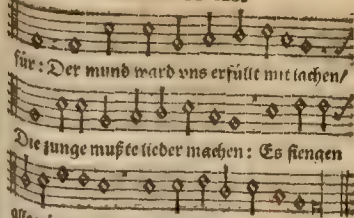 für : Der mund ward vns erfüllt mit lachen/
Die zunge mußte lieder machen : Es fiengen